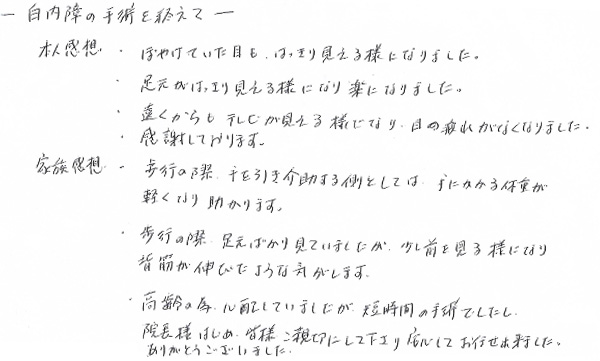 — 白内障の手術を終えて —
本人感想 ・ ぼやけていた目も、はっきり見える様になりました。
・ 足元がはっきり見える様になり楽になりました。
・ 遠くからもテレビが見える様になり、目の疲れがなくなりました。
・ 感謝しております。
家族感想 ・ 歩行の際、手を引き介助する側としては、手にかかる体重が
軽くなり助かります。
・ 歩行の際、足元ばかり見ていましたが、少し前を見る様になり
背筋が伸びたような気がします。
・ 高齢の為、心配していましたが、短時間の手術でしたし、
院長様はじめ、皆様ご親切にして下さり安心してお任せ出来ました。
ありがとうございました。